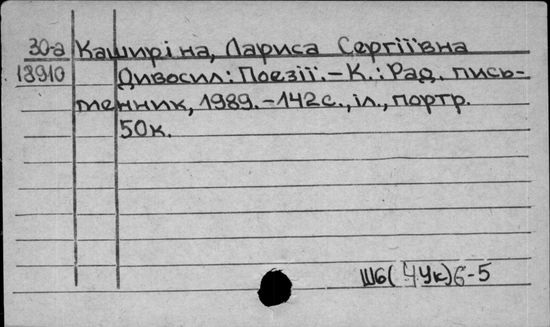 30-а Каширіна, Лариса Сергіївна
13910 Дивосил: Поезії. – К.: Рад. пись-
менник, 1989. – 142 с., іл., портр.
50к.
Ш6(4Ук)6-5